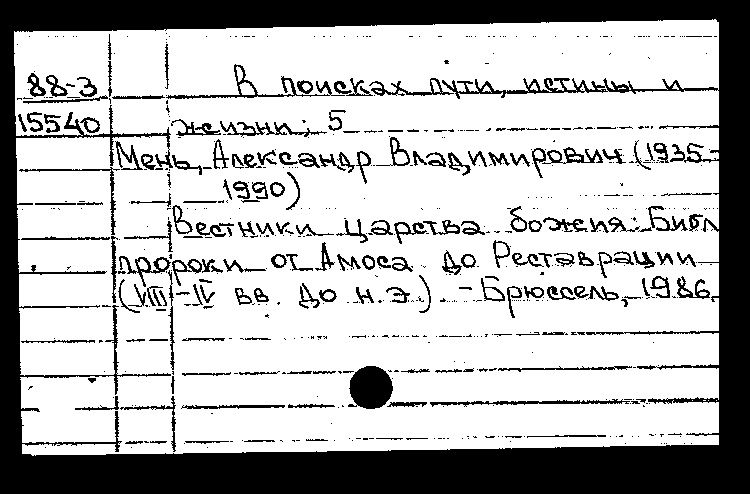 88-3 В поисках пути, истины и
15540 жизни; 5
Мень, Александр Владимирович (1935-
1990)
Вестники царства божия: Библ
пророки от Амоса до Реставрации
(VIII-IV вв. до н.э.). - Брюссель, 1986.